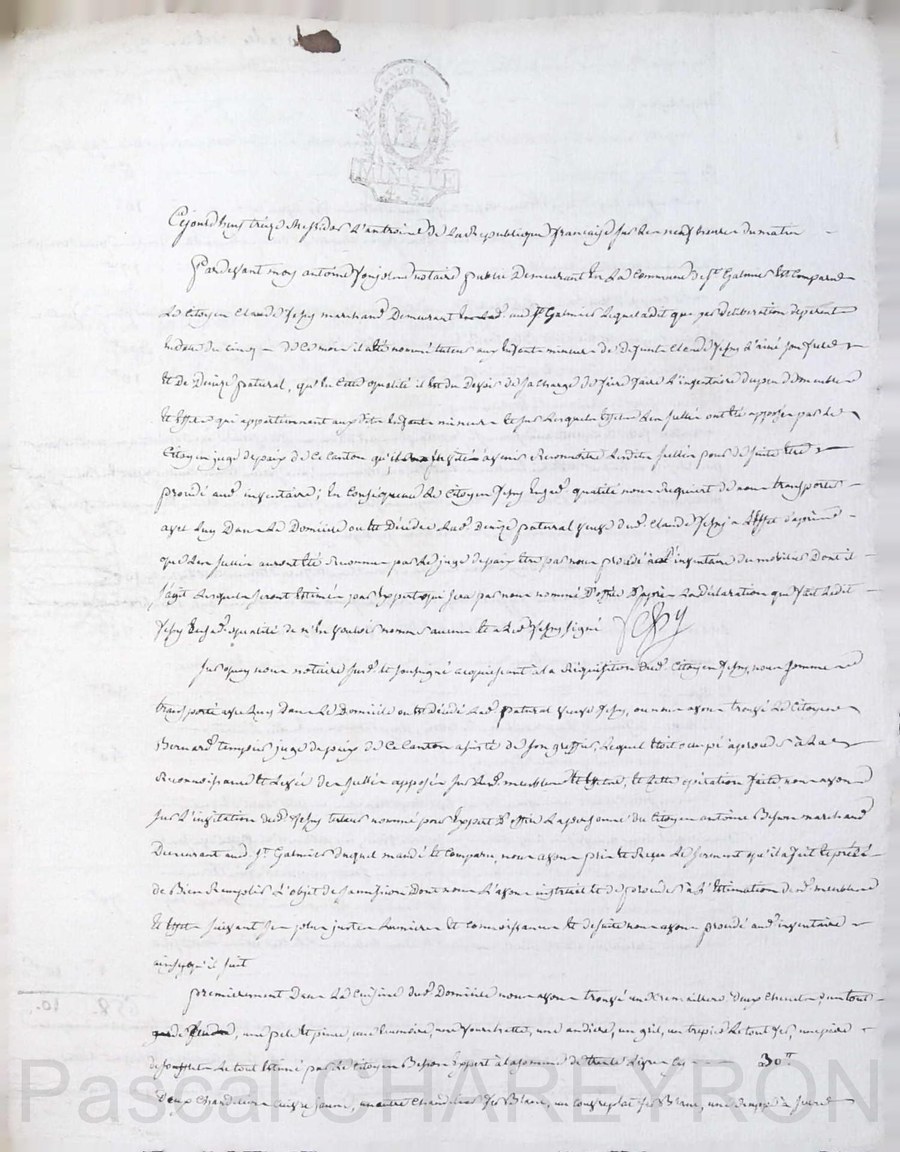 LA LOI
MINUTE
Cejourdhuy treize Messidor L'an trois de La Republique francaise sur Les neuf heures du matin
Pardevant moy antoine notaire public Demeurant En La Commune de St Galmier Est Comparu
Le Citoyen Claude Jessy marchand Demeurant En Lad. une St Galmier Lequel a dit que par deliberation
du cinq de Ce mois il a été nommé tuteur aux Enfants mineurs de defunts Claude Jessy L'ainé son frere
Et De Denize patural, qu'En Cette qualité il Est du Devoir de sa Charge de faire faire L'inventaire du peu de meubles
Et Effets qui appartiennent aux dits Enfants mineurs Et sur Lesquels Effets Les scellés ont été apposés par le
Citoyen juge de paix de Ce Canton qu'il a invité à venir Reconnoitre Lesdits scellés pour de suite Etre
procédé aud. inventaire; En Conséquence Le Citoyen Jessy En lad. qualité nous Requiert de nous transporter
avec Luy Dans Le Domicile ou Est Décédée Lad. Denize patural veuve dud. Claude Jessy a L'effet d'après
que Les scellés auront été Reconnus par Le juge de paix Etre par nous procédé à L'inventaire du mobilier Dont il
s'agit Lesquels seront Estimés par Expert qui sera par nous nommé D'office D'après La déclaration que fait Ledit
Jessy En sad. qualité de n'En vouloir nommer aucun Et a Led. Jessy signé Jessy
Sur quoy nous notaire susd. Et soussigné acquiesçant à La Réquisition dud. Citoyen Jessy, nous sommes
transporté avec Luy Dans Le Domicile ou Est Décédé Lad. patural veuve Jessy, ou nous avons trouvé Le Citoyen
Bernard juge de paix de Ce Canton assisté de son greffier, Lequel étoit occupé à procéder à La
Reconnoissance Et Levée des scellés apposés sur Lesd. meubles Et Effets, Et Cette opération faite, nous avons
sur L'invitation dud. Jessy tuteur nommé pour Expert D'office La personne du Citoyen antoine Besson marchand
Demeurant aud. St Galmier Duquel mandé Et Comparu, nous avons pris Et Reçu Le serment qu'il a fait Et preté
de Bien Remplir L'objet de sa mission Dont nous L'avons instruit Et de proceder à L'Estimation desd. meubles
Et Effets suivant ses plus justes Lumieres Et Connoissances Et de suite nous avons procédé aud. inventaire
ainsy qu'il suit
premièrement Dans La Cuisine dud. Domicile nous avons trouvé un Cremaillere, deux Chenets,
une pele Et pince, une une andier, un gril, un trepied Le tout fer, une paire
de soufflet Le tout Estimé par Le Citoyen Besson Expert à La somme de trente Livres Cy 30 tt
Deux Chandeliers cuivre jaune, un autre Chandelier fer Blanc, un fer Blanc, une
Pascal CHAREYRON